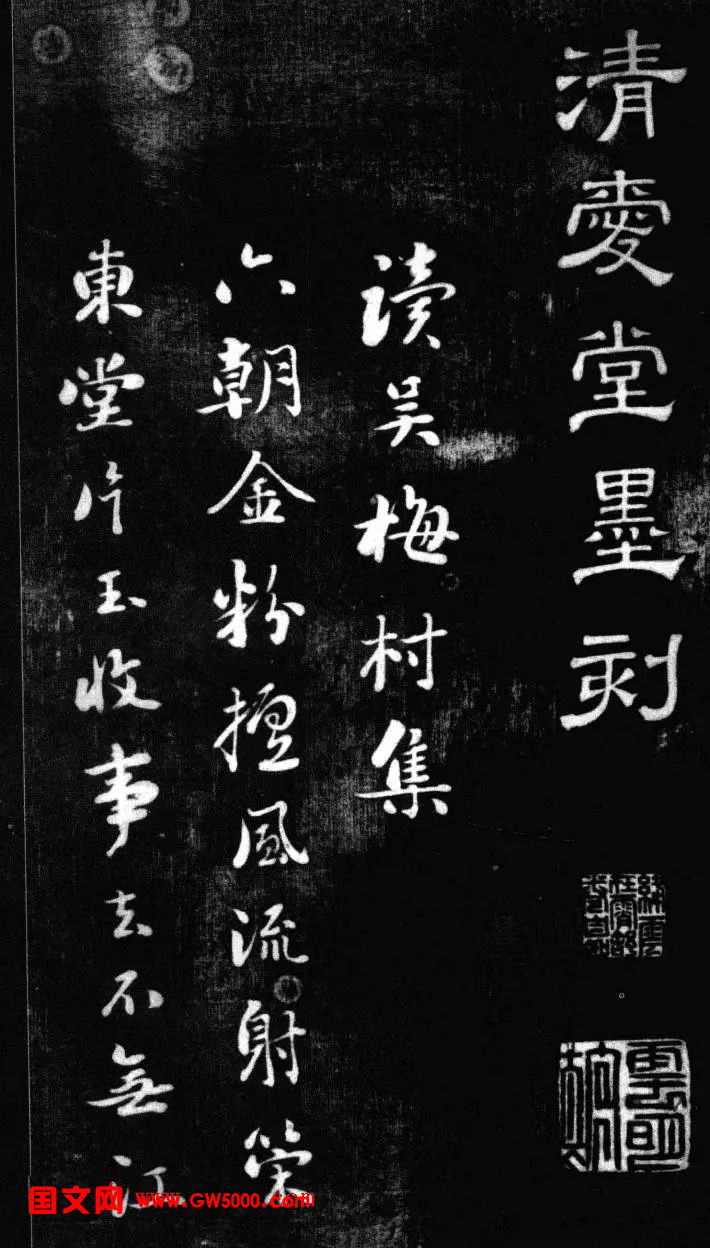 清愛堂墨刻
讀吴梅村集
六朝金粉擅風流射策
東堂片玉收事去不無江
国文网 www.GW5000.com